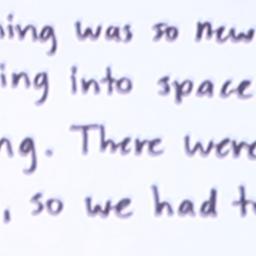 ning was so new
ing into space
ng. There were
, so we had t